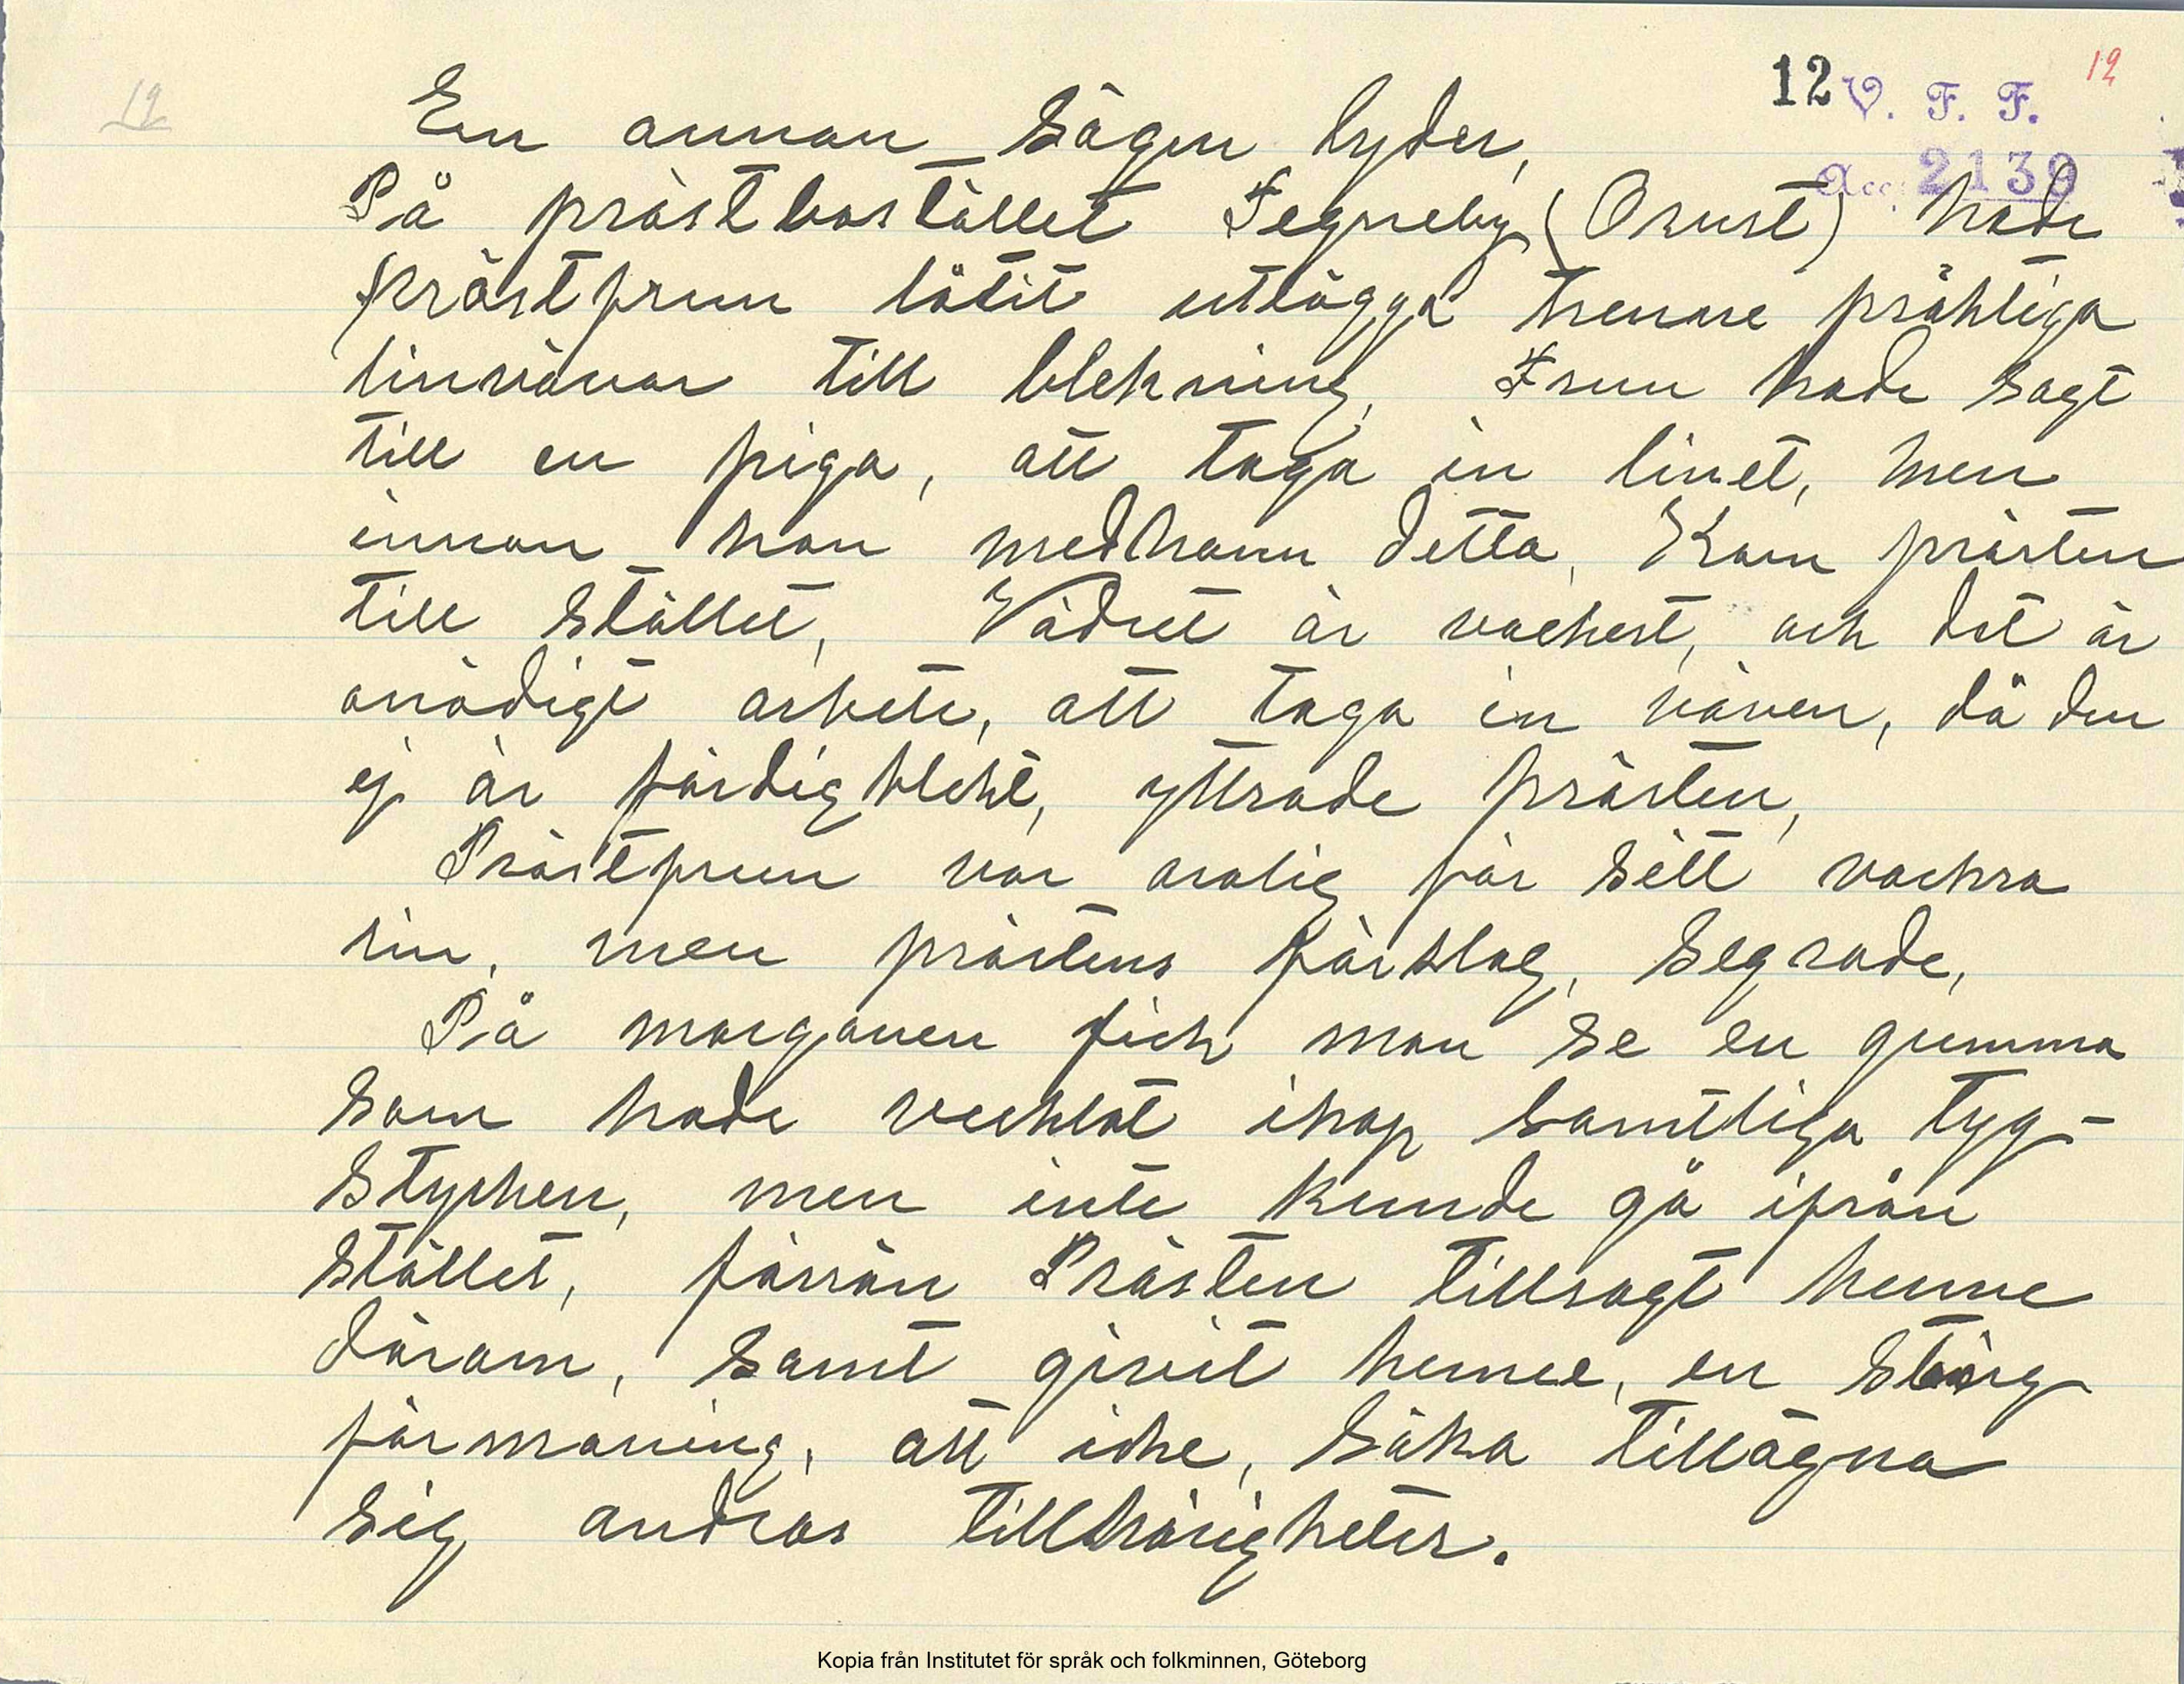 12
12 V. F. F. 12
Acc. 2139
En annan sägen lyder,
På prästbostället Tegneby (Orust) hade
prästfrun låtit utlägga trenne präktiga
linvävar till blekning, Frun hade sagt
till en piga, att taga in linet, men
innan hon medhann detta, kom prästen
till stället, Vädret är vackert, och det är
onödigt arbete, att taga in väven, då den
ej är färdigblekt, yttrade prästen,
Prästfrun var orolig för sitt vackra
lin, men prästens förslag, segrade,
På morgonen fick man se en gumma
som hade vecklat ihop samtliga tyg-
stycken, men inte kunde gå ifrån
stället, förrän Prästen tillsagt henne
därom, samt givit henne, en sträng
förmaning, att icke, söka tillägna
sig andras tillhörigheter.
Kopia från Institutet för språk och folkminnen, Göteborg